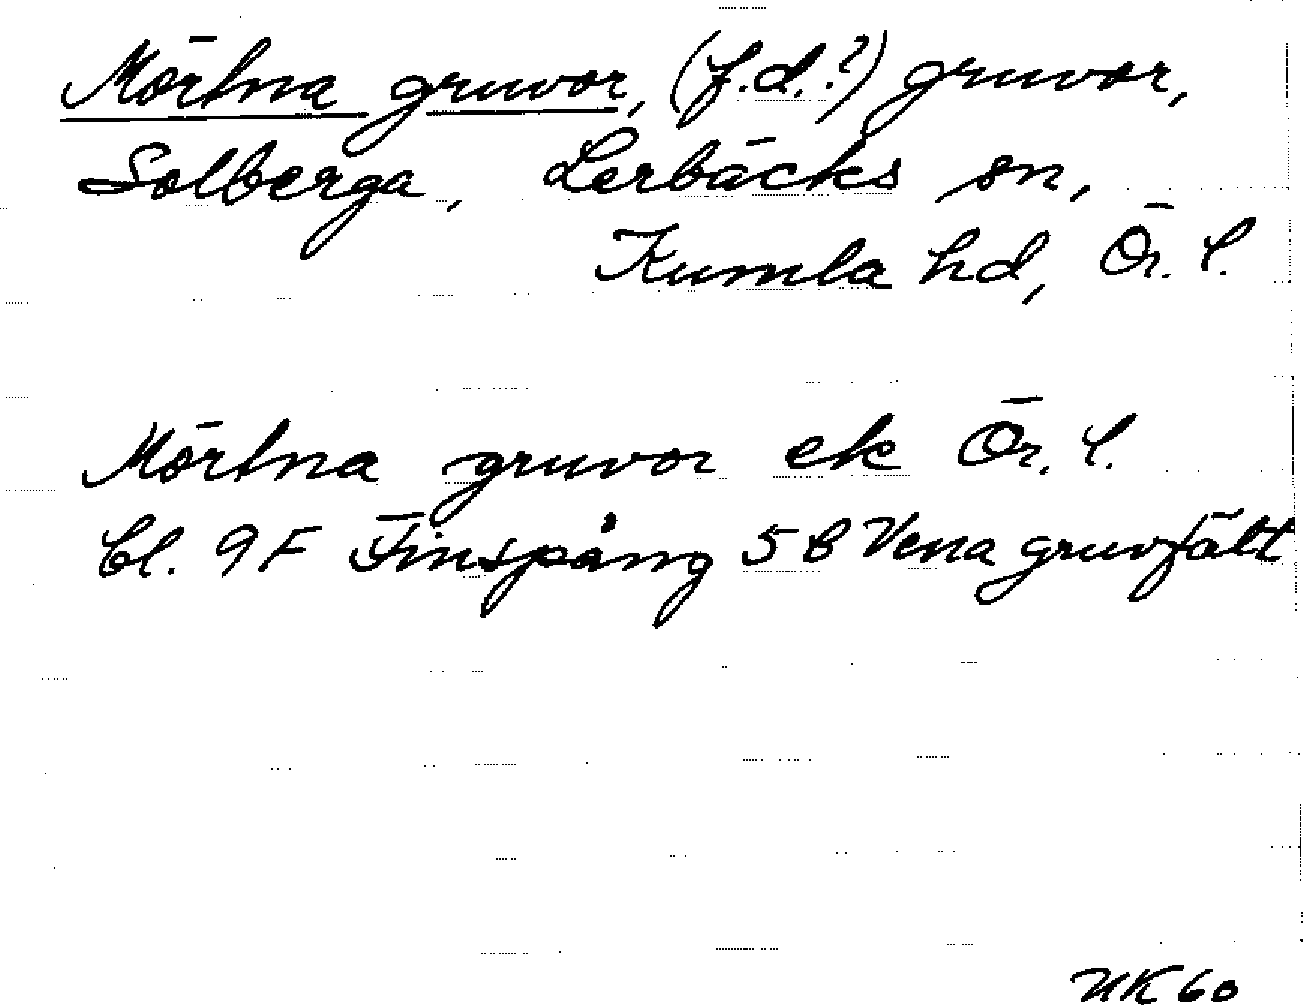 Mörtna gruvor, (f.d.?) gruvor,
Solberga, Lerbäcks sn,
Kumla hd, Ör. l.
Mörtna gruvor ek Ör. l.
bl. 9F Finspång 5 B Vena gruvfält
NK 60